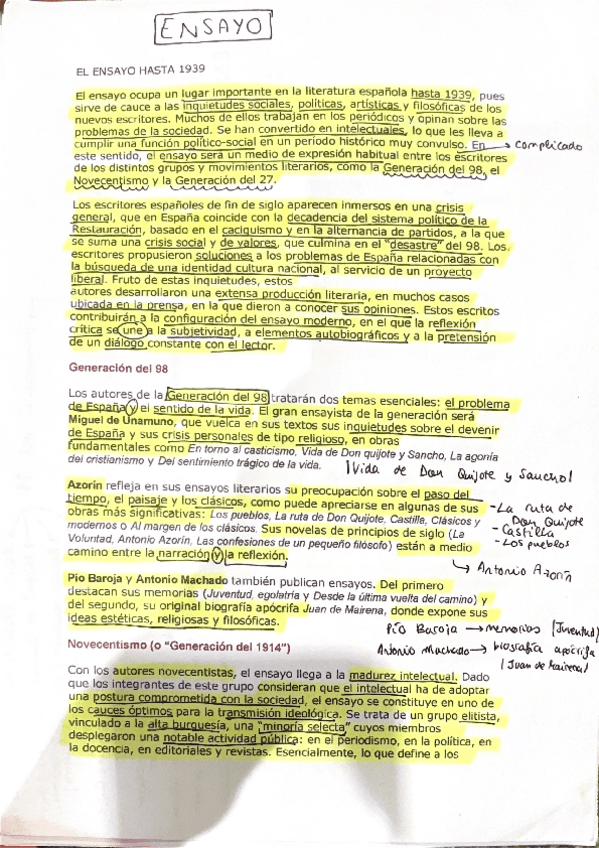 ENSAYO
EL ENSAYO HASTA 1939
El ensayo ocupa un lugar importante en la literatura española hasta 1939, pues
sirve de cauce a las inquietudes sociales, políticas, artísticas y filosóficas de los
nuevos escritores. Muchos de ellos trabajan en los periódicos y opinan sobre las
problemas de la sociedad. Se han convertido en intelectuales, lo que les lleva a
cumplir una función político-social en un periodo histórico muy convulso. En
complicado
este sentido, el ensayo será un medio de expresión habitual entre los escritores
de los distintos grupos y movimientos literarios, como la Generación del 98, el
Novecentismo y la Generación del 27.
Los escritores españoles de fin de siglo aparecen inmersos en una crisis
general, que en España coincide con la decadencia del sistema político de la
Restauración, basado en el caciquismo y en la alternancia de partidos, a la que
se suma una crisis social y de valores, que culmina en el "desastre" del 98. Los
escritores propusieron soluciones a los problemas de España relacionadas con
la búsqueda de una identidad cultura nacional, al servicio de un proyecto
liberal. Fruto de estas inquietudes, estos
autores desarrollaron una extensa producción literaria, en muchos casos
ubicada en la prensa, en la que dieron a conocer sus opiniones. Estos escritos
contribuirán a la configuración del ensayo moderno, en el que la reflexión
crítica se une a la subjetividad, a elementos autobiográficos y a la pretensión
de un diálogo constante con el lector.
Generación del 98
Los autores de la Generación del 98 tratarán dos temas esenciales: el problema
de España y el sentido de la vida. El gran ensayista de la generación será
Miguel de Unamuno, que vuelca en sus textos sus inquietudes sobre el devenir
de España y sus crisis personales de tipo religioso, en obras
fundamentales como En torno al casticismo, Vida de Don quijote y Sancho, La agonía
del cristianismo y Del sentimiento trágico de la vida.
(Vida de Don Quijote y Sancho)
Azorín refleja en sus ensayos literarios su preocupación sobre el paso del
tiempo, el paisaje y los clásicos, como puede apreciarse en algunas de sus
obras más significativas: Los pueblos, La ruta de Don Quijote, Castilla, Clásicos y
modernos o Al margen de los clásicos. Sus novelas de principios de siglo (La
Voluntad, Antonio Azorín, Las confesiones de un pequeño filósofo) están a medio
camino entre la narración y la reflexión.
-La ruta de
Don Quijote
-Castilla
-Los pueblos
Antonio Azorín
Pío Baroja y Antonio Machado también publican ensayos. Del primero
destacan sus memorias (Juventud, egolatría y Desde la última vuelta del camino) y
del segundo, su original biografía apócrifa Juan de Mairena, donde expone sus
ideas estéticas, religiosas y filosóficas.
Pío Baroja → memorias (Juventud)
Antonio Machado → biografía apócrifa
(Juan de Mairena)
Novecentismo (o "Generación del 1914")
Con los autores novecentistas, el ensayo llega a la madurez intelectual. Dado
que los integrantes de este grupo consideran que el intelectual ha de adoptar
una postura comprometida con la sociedad, el ensayo se constituye en uno de
los cauces óptimos para la transmisión ideológica. Se trata de un grupo elitista,
vinculado a la alta burguesía, una "minoría selecta" cuyos miembros
desplegaron una notable actividad pública: en el periodismo, en la política, en
la docencia, en editoriales y revistas. Esencialmente, lo que define a los